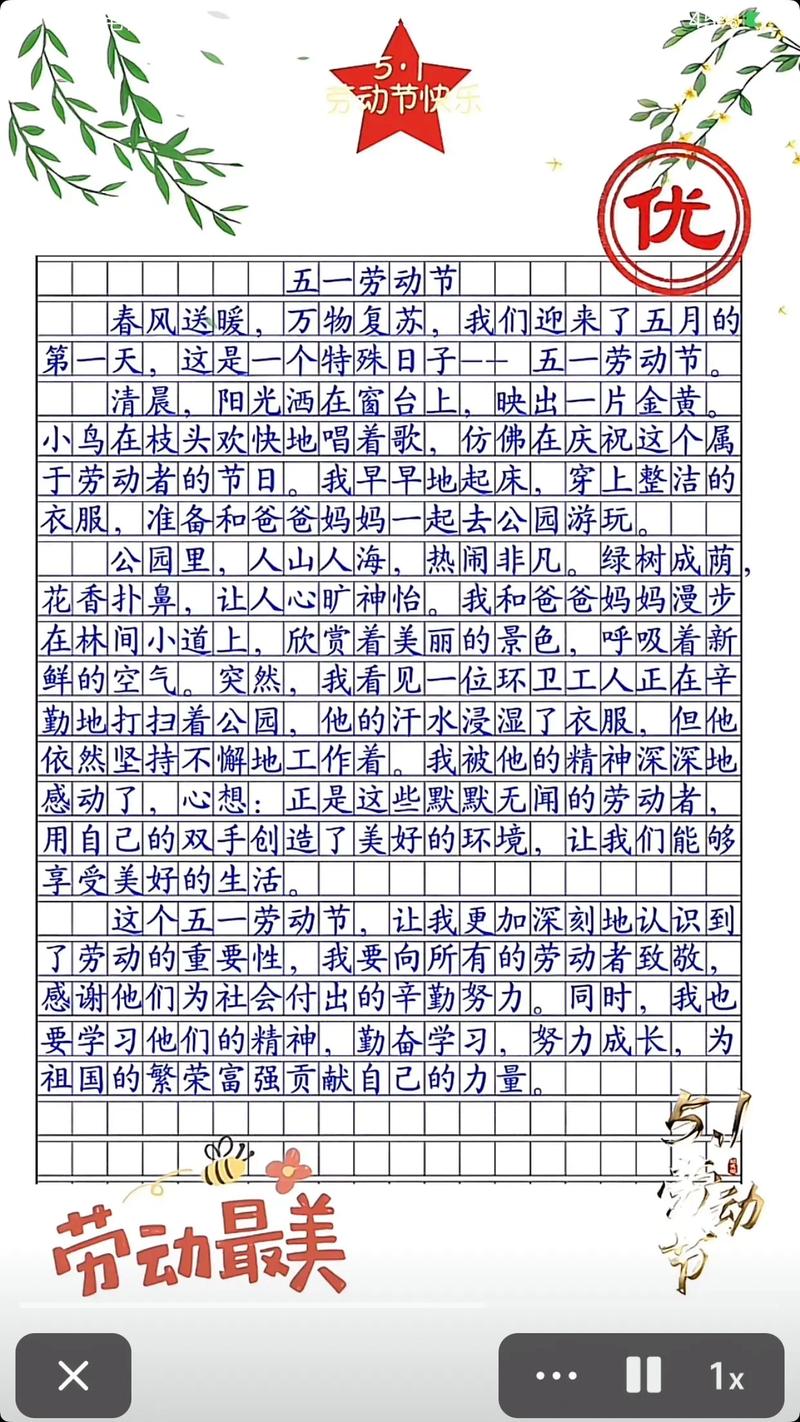 5·1
劳动节快乐
优
五一劳动节
春风送暖，万物复苏，我们迎来了五月的
第一天，这是一个特殊日子—— 五一劳动节。
清晨，阳光洒在窗台上，映出一片金黄。
小鸟在枝头欢快地唱着歌，仿佛在庆祝这个属
于劳动者的节日。我早早地起床，穿上整洁的
衣服，准备和爸爸妈妈一起去公园游玩。
公园里，人山人海，热闹非凡。绿树成荫，
花香扑鼻，让人心旷神怡。我和爸爸妈妈漫步
在林间小道上，欣赏着美丽的景色，呼吸着新
鲜的空气。突然，我看见一位环卫工人正在辛
勤地打扫着公园，他的汗水浸湿了衣服，但他
依然坚持不懈地工作着。我被他的精神深深地
感动了，心想：正是这些默默无闻的劳动者，
用自己的双手创造了美好的环境，让我们能够
享受美好的生活。
这个五一劳动节，让我更加深刻地认识到
了劳动的重要性，我要向所有的劳动者致敬，
感谢他们为社会付出的辛勤努力。同时，我也
要学习他们的精神，勤奋学习，努力成长，为
祖国的繁荣富强贡献自己的力量。
5.1
劳动节
劳动最美
1x